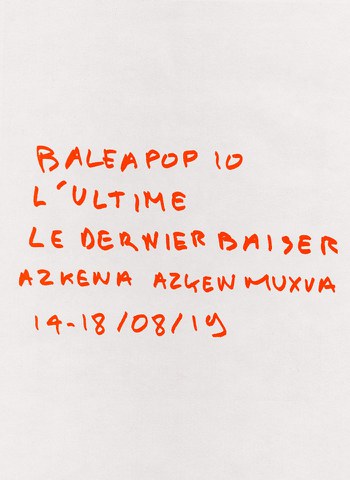 BALEAPOP 10
L'ULTIME
LE DERNIER BAISER
AZKENA AZKEN MUXUA
14-18/08/19